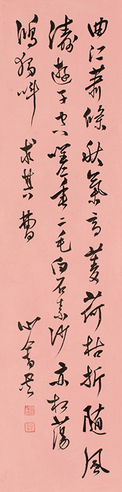 曲江蕭條秋氣高菱荷枯折隨風
濤遊子空嗟垂二毛白石素沙亦相蕩
鴻獨叫求其曹
心畬書